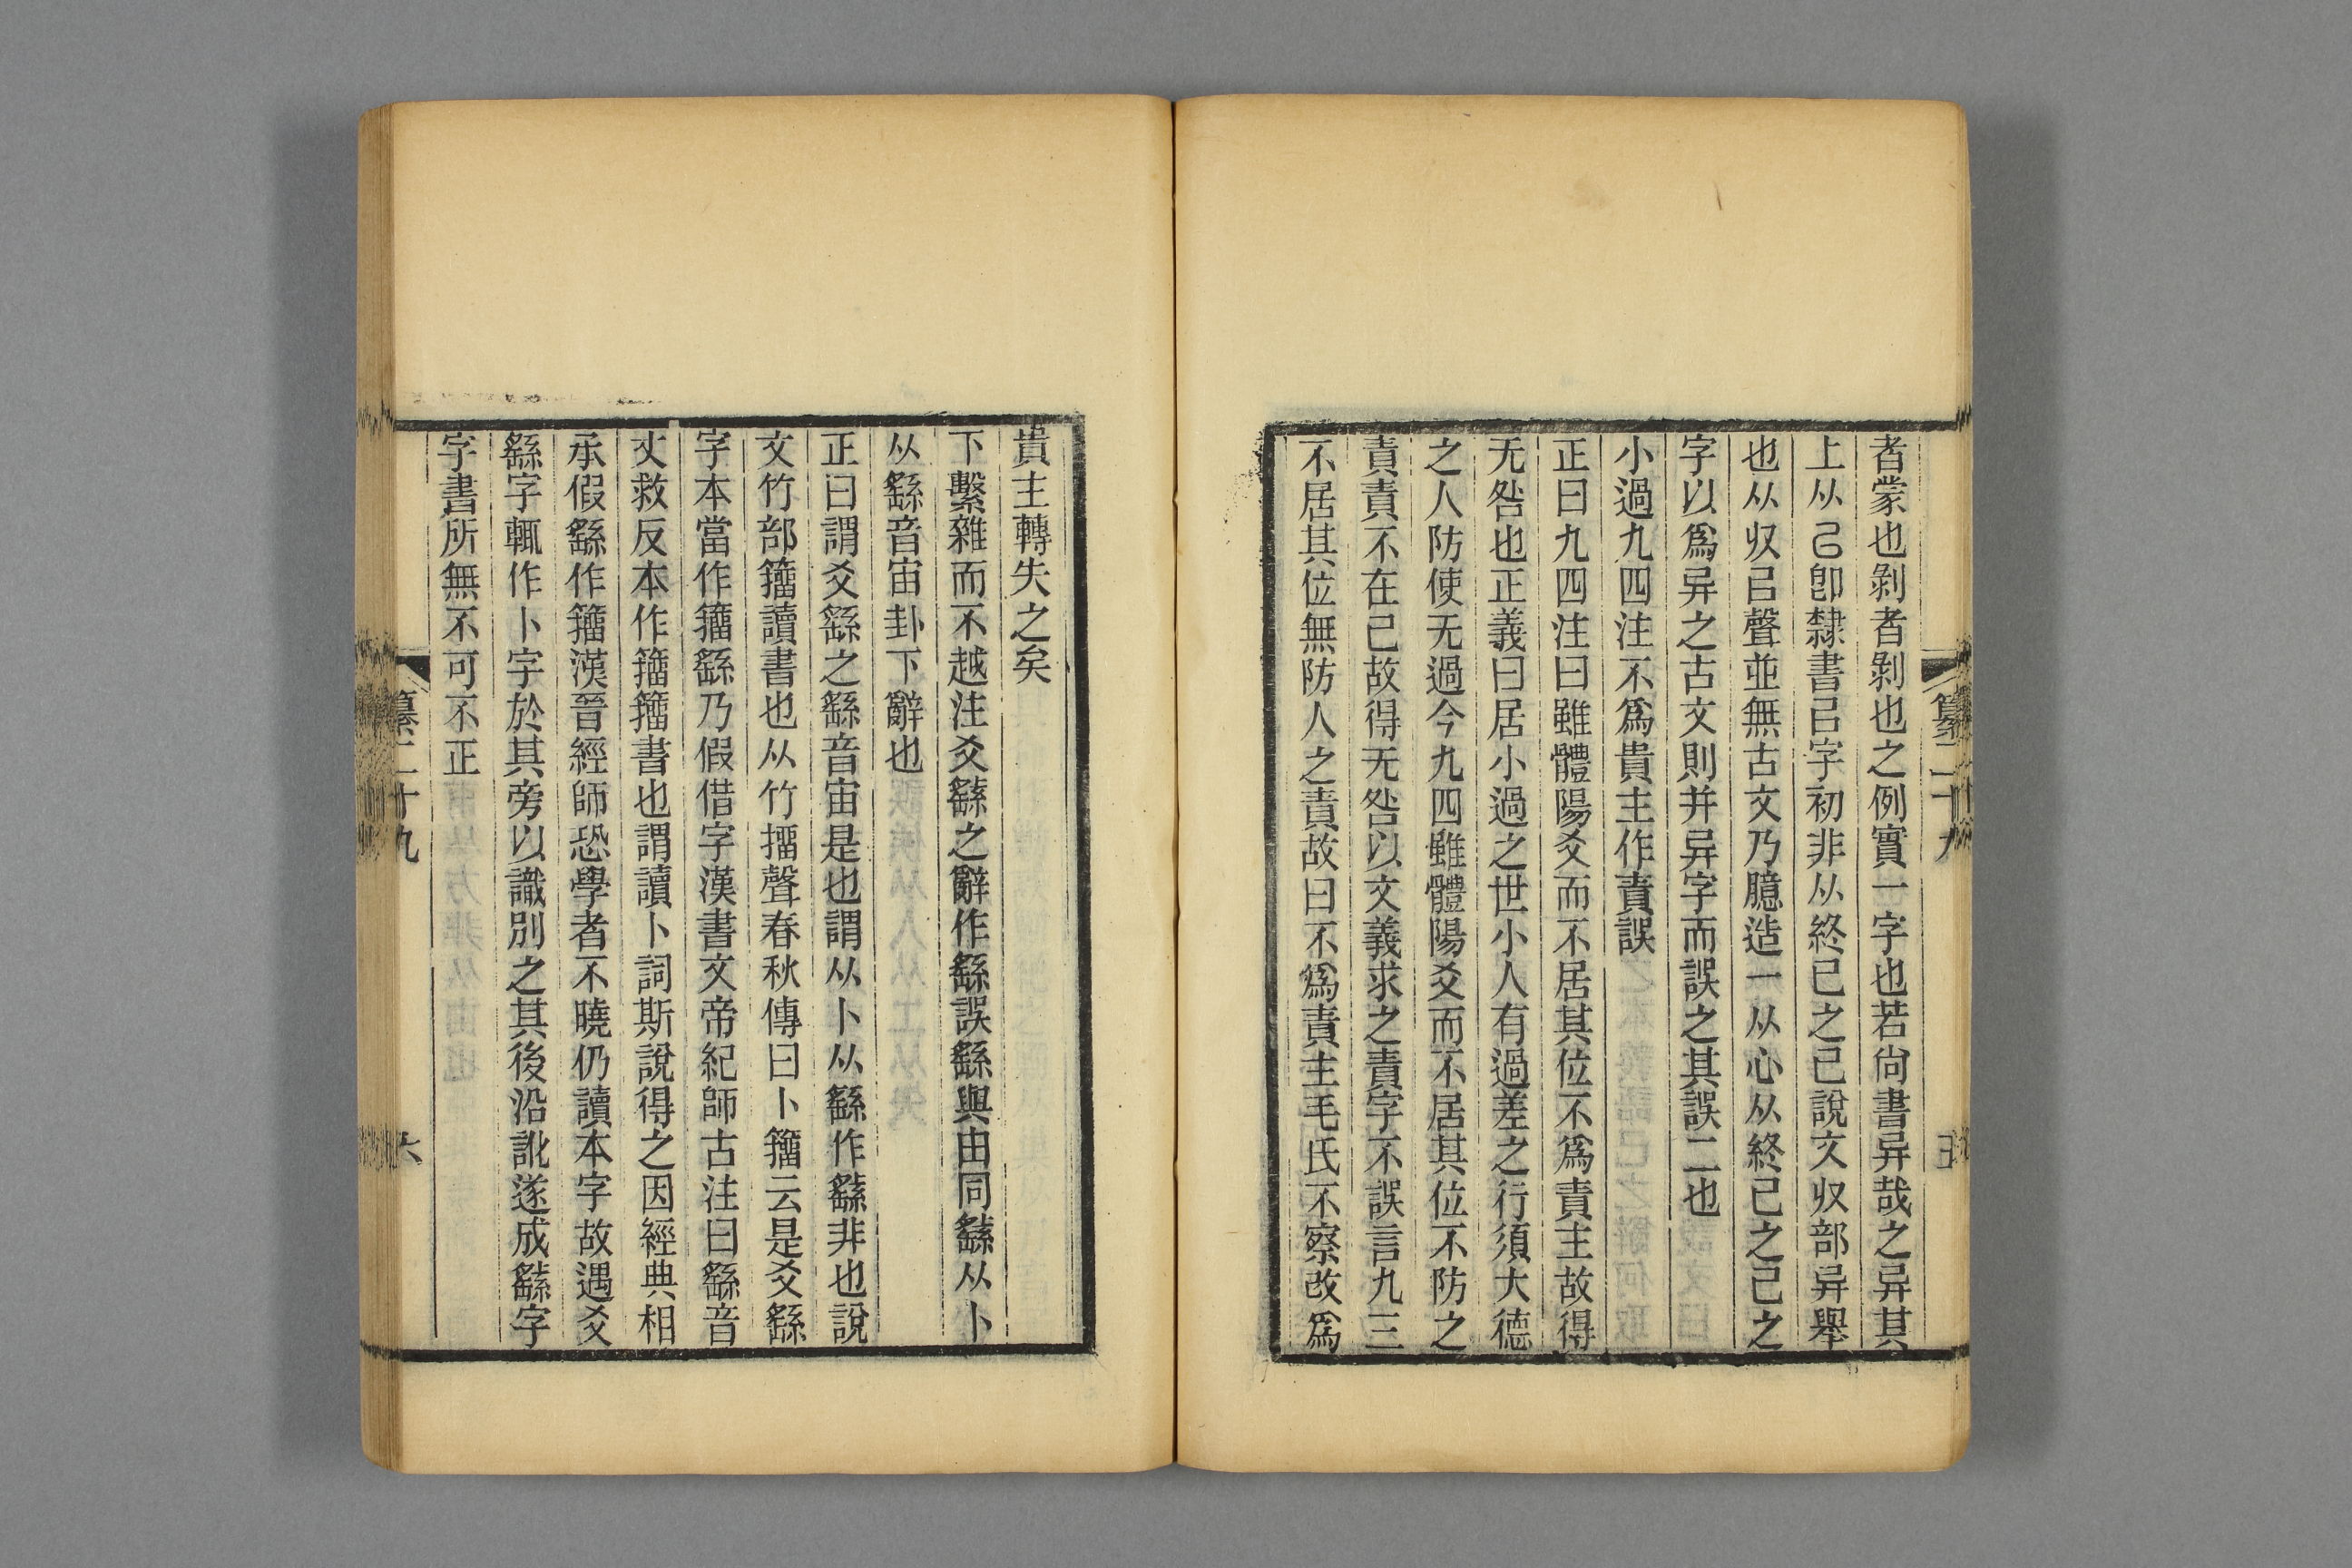 者蒙也剝者剝也之例實一字也若尙書异哉之异其
上从㠯卽隸書㠯字初非从終已之已說文収部异舉
也从収㠯聲並無古文乃臆造一从心从終已之已之
字以爲异之古文則幷异字而誤之其誤二也
小過九四注不爲貴主作責誤
正曰九四注曰雖體陽爻而不居其位不爲責主故得
无咎也正義曰居小過之世小人有過差之行須大德
之人防使无過今九四雖體陽爻而不居其位不防之
責責不在己故得无咎以文義求之責字不誤言九三
不居其位無防人之責故曰不爲責主毛氏不察改爲
纂二十九
五
貴主轉失之矣
下繫雜而不越注爻繇之辭作繇誤繇與由同䌛从卜
从䌛音宙卦下辭也
正曰謂爻繇之繇音宙是也謂从卜从繇作䌛非也說
文竹部籒讀書也从竹㩅聲春秋傳曰卜籒云是爻繇
字本當作籒繇乃假借字漢書文帝紀師古注曰繇音
丈救反本作籒籒書也謂讀卜詞斯說得之因經典相
承假繇作籒漢晉經師恐學者不曉仍讀本字故遇爻
繇字輒作卜字於其旁以識別之其後沿訛遂成䌛字
字書所無不可不正
纂二十九
六